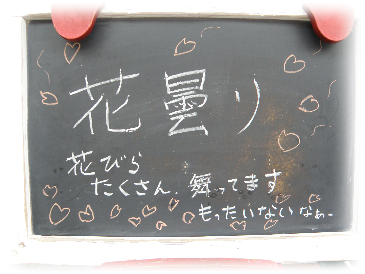 花曇り
花びら
たくさん、舞ってます
もったいないなぁ〜